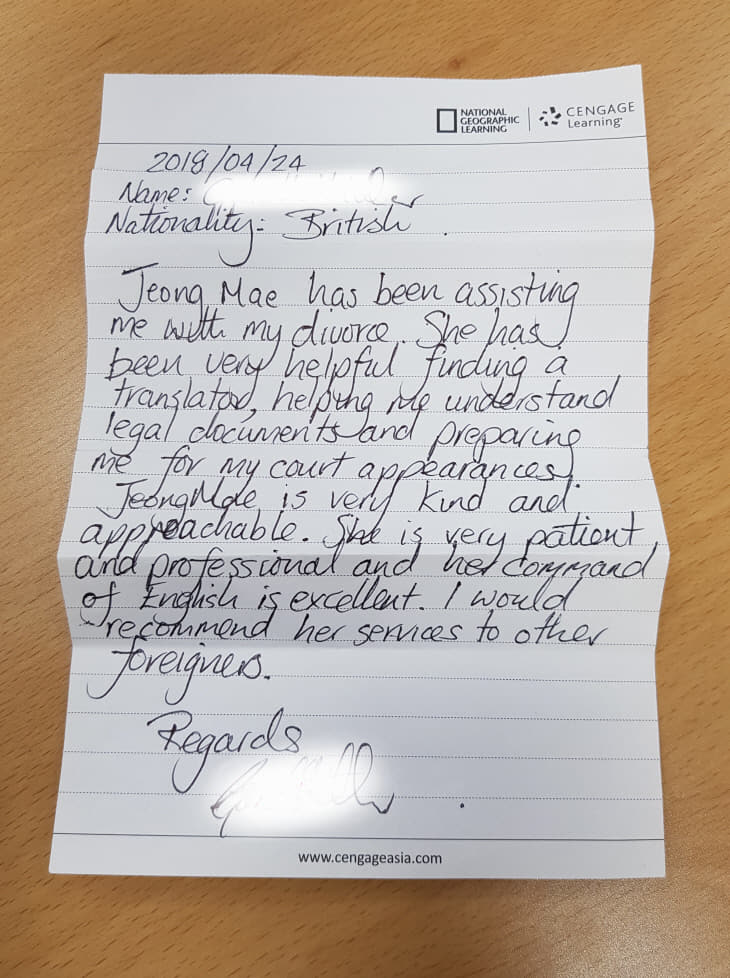 NATIONAL
GEOGRAPHIC
LEARNING
CENGAGE
Learning
2018/04/24
Name:
Nationality: British.
Jeong Mae has been assisting
me with my divorce. She has
been very helpful finding a
translator, helping me understand
legal documents and preparing
me for my court appearances.
JeongMae is very kind and
approachable. She is very patient
and professional and her command
of English is excellent. I would
recommend her services to other
foreigners.
Regards
www.cengageasia.com